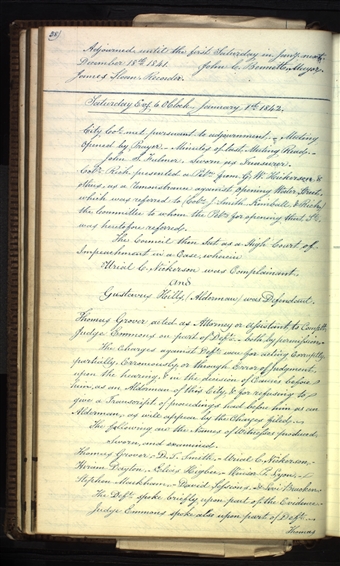 Adjourned until the first Saturday in Jany. next.
December 18th 1841. John C. Bennett, Mayor.
James Sloan Recorder.
Saturday Evg. 6 OClock January 1st 1842.
City Col. met pursuant to adjournment. Meeting
Opened by Prayer. Minutes of last Meeting Read.
John S. Fulmer Sworn as Treasurer.
Colr. Rich presented a Petn. from G. W. Hickerson &
others, as a Remonstrance against opening Water Street,
which was refered to Colrs. J. Smith, Kimball, & Rich;
the Committee to whom the Petn. for opening that St.
was heretofore refered.
The Council then Sat as a High Court of
Impeachment in a Case, wherein
Uriel C. Nickerson was Complainant,
and
Gustavus Hills (Alderman) was Defendant.
Thomas Grover acted as Attorney or assistant to Complt.
Judge Emmons on part of Deft. both by permission.
The Charges against Deft. were for acting Corruptly,
partially, Erroneously, or through Error of Judgment,
upon the hearing, & in the decision of Causes before
him, as an Alderman of this City, & for refusing to
give a Transcript of proceedings had before him as an
Alderman, as will appear by the Charges filed.
The following are the Names of Witnesses produced,
Sworn, and examined.
Thomas Grover, D. T. Smith, Uriel C. Nickerson,
Hiram Dayton, Elias Higbee,
Stephen Markham, David Sessions, & Levi Bracken.
The Deft. spoke briefly upon part of the Evidence.
Judge Emmons spoke also upon part of Deft.
Thomas